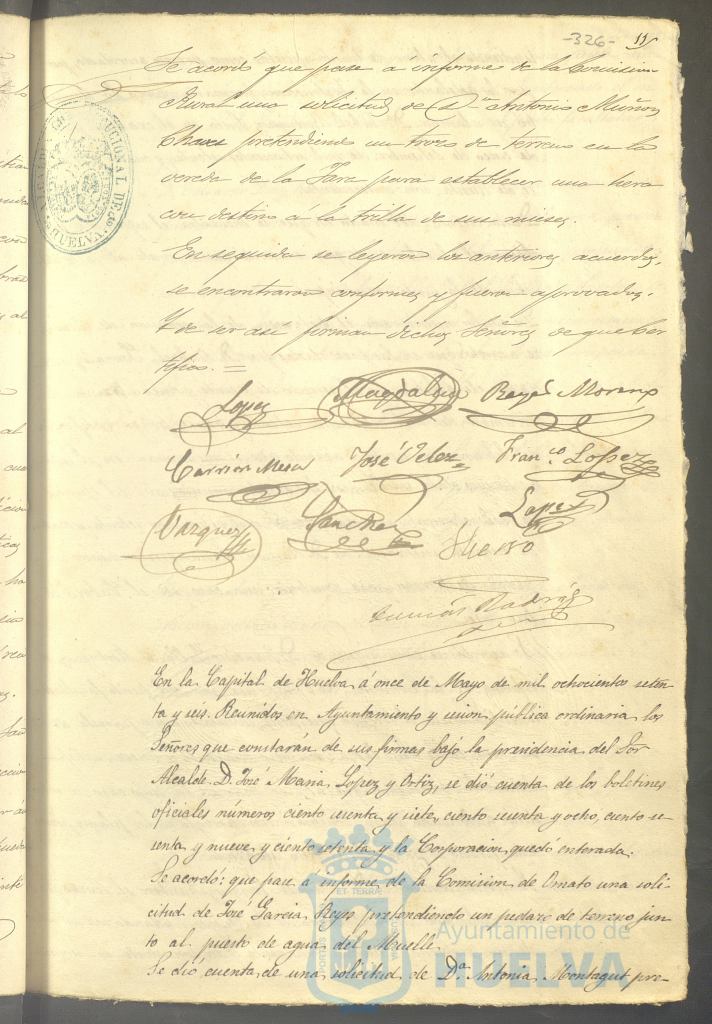 -326-
Se acordó que pase á informe de la Comision
Rural una solicitud de Dn Antonio Muñoz
Chaves pretendiendo un trozo de terreno en la
vereda de la para establecer una hera
con destino á la trilla de sus mieses.
En seguida se leyeron los anteriores acuerdos,
se encontraron conformes y fueron aprovados.
Y de ser asi firman dichos Señores de que Cer
tifico. =
Lopez Magdalena Reyes Moreno
Carrión Mesa José Velez Franco Lopez
Vazquez Sanchez Lopez
En la Capital de Huelva á once de Mayo de mil ochocientos seten
ta y seis. Reunidos en Ayuntamiento y sesion pública ordinaria los
Señores que constarán de sus firmas bajo la presidencia del Sor
Alcalde D. José Maria Lopez y Ortiz, se dió cuenta de los boletines
oficiales números ciento sesenta y siete, ciento sesenta y ocho, ciento se-
senta y nueve y ciento setenta y la Corporacion quedó enterada.
Se acordó: que pase a informe de la Comision de Ornato una soli-
citud de José Garcia Reyes pretendiendo un pedazo de terreno jun
to al puesto de agua del Muelle.
Se dió cuenta de una solicitud de Da Antonia Montagut pre-
CONSTITUCIONAL DE HUELVA
Ayuntamiento de
HUELVA